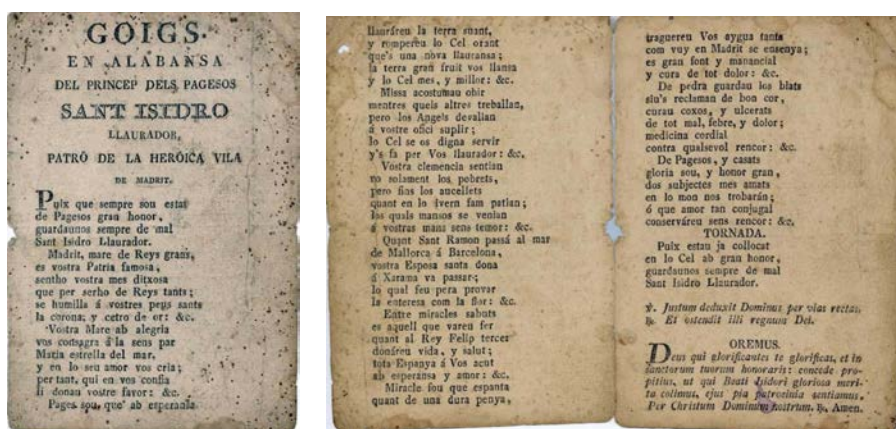 GOIGS
EN ALABANSA
DEL PRINCEP DELS PAGESOS
SANT ISIDRO
LLAURADOR,
PATRÓ DE LA HERÓICA VILA
DE MADRIT.
Puix que sempre sou estat
de Pagesos gran honor,
guardaunos sempre de mal
Sant Isidro Llaurador.
Madrit, mare de Reys grans,
es vostra Patria famosa,
sentho vostra mes ditxosa
que per serho de Reys tants;
se humilla á vostres peus sants
la corona, y cetro de or: &c.
Vostra Mare ab alegria
vos consagra á la sens par
Maria estrella del mar,
y en lo seu amor vos cria;
per tant, qui en vos confia
li donau vostre favor: &c.
Pages sou, que ab esperansa
llauráreu la terra suant,
y rompereu lo Cel orant
que's una nova llauransa;
la terra gran fruit vos llansa
y lo Cel mes, y millor: &c.
Missa acostumau ohir
mentres quels altres treballan,
pero los Angels devallan
á vostre ofici suplir;
lo Cel se os digna servir
y's fa per Vos llaurador: &c.
Vostra clemencia sentian
no solament los pobrets,
pero fins los aucellets
quant en lo ivern fam patian;
los quals mansos se venian
á vostras mans sens temor: &c.
Quant Sant Ramon passá al mar
de Mallorca á Barcelona,
vostra Esposa santa dona
á Xarama va passar;
lo qual feu pera provar
la enteresa com la flor: &c.
Entre miracles sabuts
es aquell que vareu fer
quant al Rey Felip tercer
donáreu vida, y salut;
tota Espanya á Vos acut
ab esperansa y amor: &c.
Miracle fou que espanta
quant de una dura penya,
traguereu Vos aygua tanta
com vuy en Madrit se ensenya;
es gran font y manancial
y cura de tot dolor: &c.
De pedra guardau los blats
siu's reclaman de bon cor,
curau coxos, y ulcerats
de tot mal, febre, y dolor;
medicina cordial
contra qualsevol rencor: &c.
De Pagesos, y casats
gloria sou, y honor gran,
dos subjectes mes amats
en lo mon nos trobarán;
ó que amor tan conjugal
conserváreu sens rencor: &c.
TORNADA.
Puix estau ja collocat
en lo Cel ab gran honor,
guardaunos sempre de mal
Sant Isidro Llaurador.
℣. Justum deduxit Dominus per vias rectas.
℟. Et ostendit illi regnum Dei.
OREMUS.
Deus qui glorificantes te glorificas, et in
sanctorum tuorum honoraris: concede pro-
pitius, ut qui Beati Isidori gloriosa meri-
ta colimus, ejus pia patrocinia sentiamus,
Per Christum Dominum nostrum. ℟. Amen.